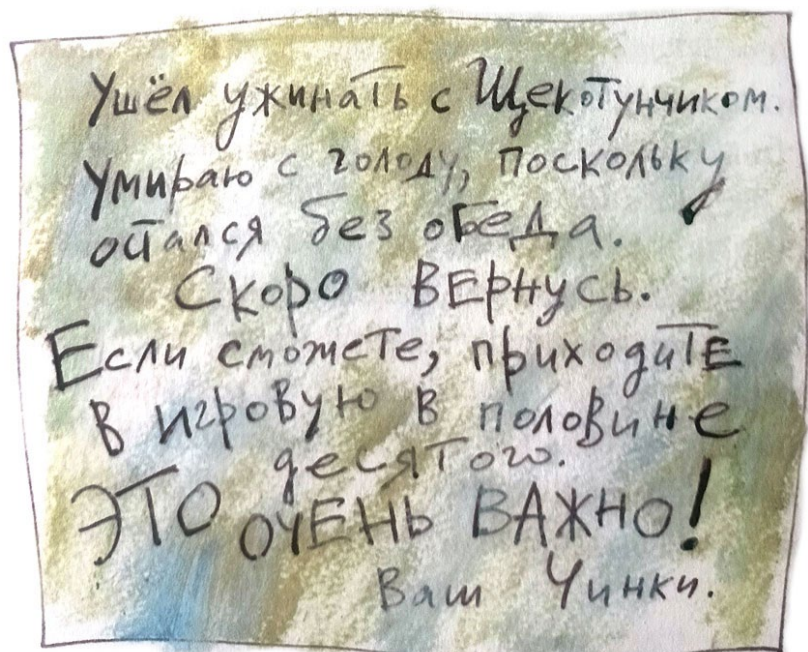 Ушёл ужинать с Щекотунчиком.
Умираю с голоду, поскольку
остался без обеда.
Скоро вернусь.
Если сможете, приходите
в игровую в половине
десятого.
ЭТО ОЧЕНЬ ВАЖНО!
Ваш Чинки.